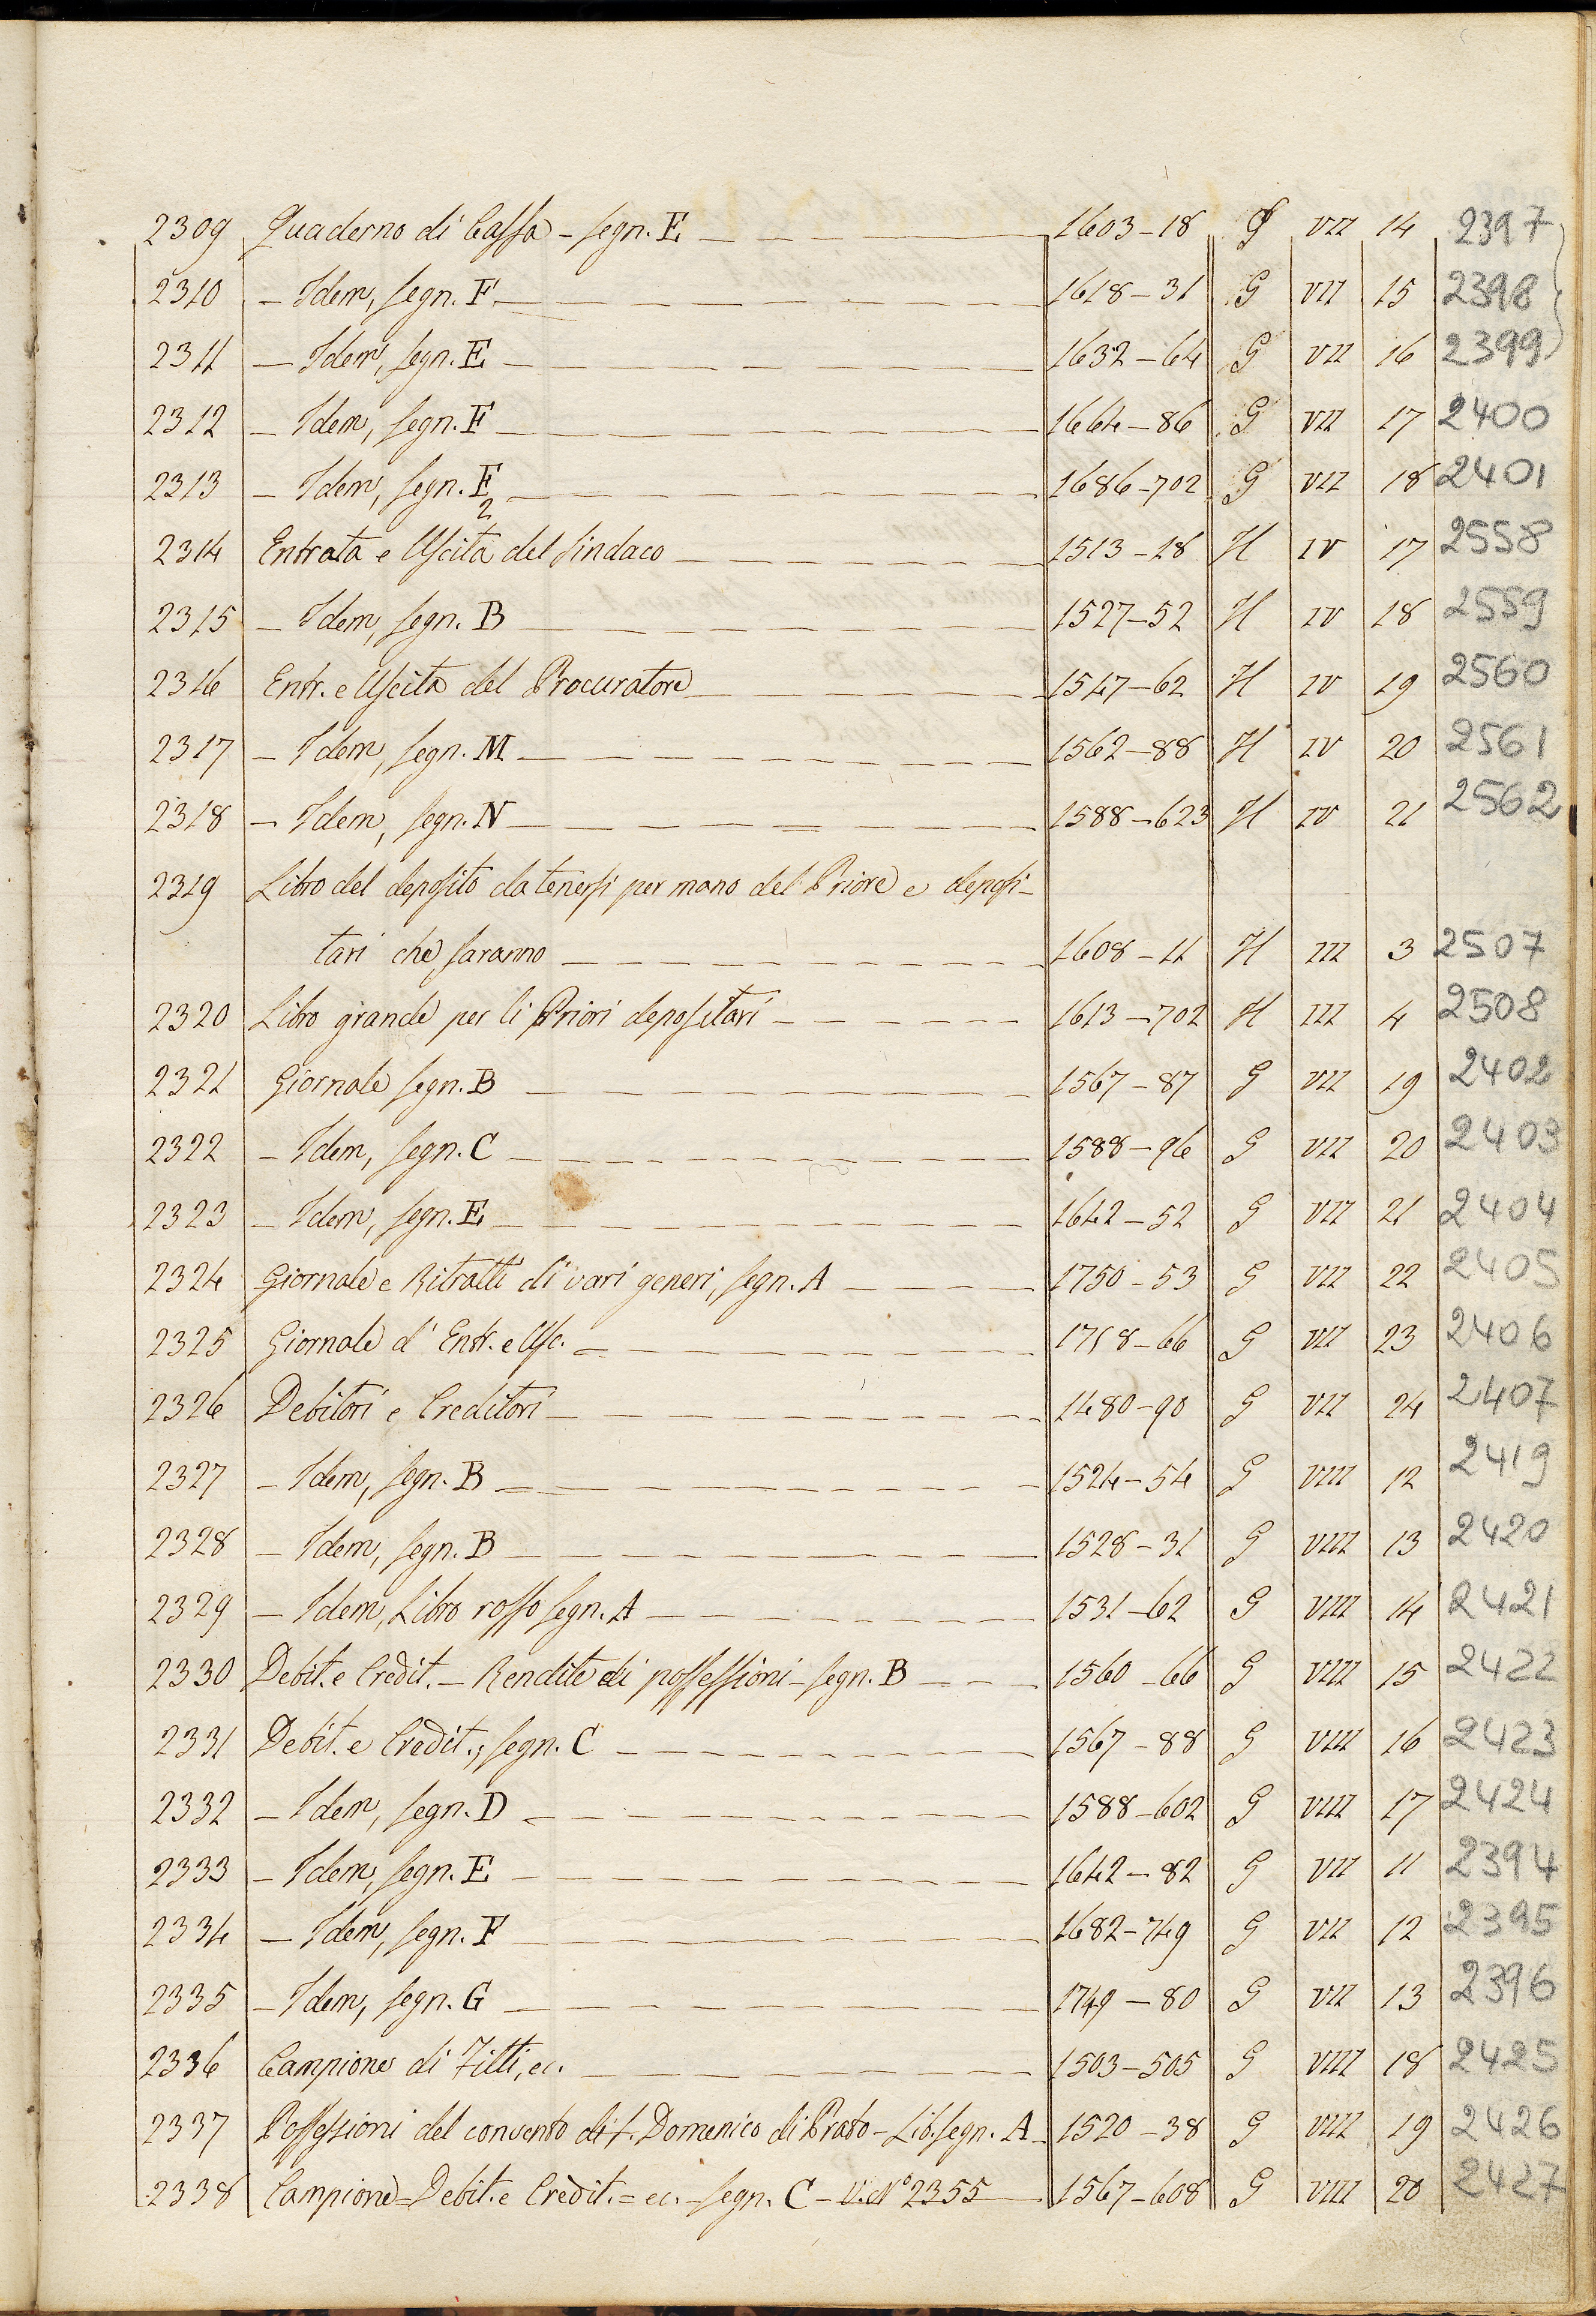 2309 Quaderno di Cassa - segn. E 1603-18 G VII 14 2397
2310 - Idem, segn. F 1618-31 G VII 15 2398
2311 - Idem, segn. E 1632-64 G VII 16 2399
2312 - Idem, segn. F 1664-86 G VII 17 2400
2313 - Idem, segn. F2 1686-702 G VII 18 2401
2314 Entrata e Uscita del Sindaco 1513-18 H IV 17 2558
2315 - Idem, segn. B 1527-52 H IV 18 2559
2316 Entr. e Uscita del Procuratore 1547-62 H IV 19 2560
2317 - Idem, segn. M 1562-88 H IV 20 2561
2318 - Idem, segn. N 1588-623 H IV 21 2562
2319 Libro del deposito da tenersi per mano del Priore e deposi-
tari che saranno 1608-11 H III 3 2507
2320 Libro grande per li Priori depositari 1613-702 H III 4 2508
2321 Giornale segn. B 1567-87 G VII 19 2402
2322 - Idem, segn. C 1588-96 G VII 20 2403
2323 - Idem, segn. E 1642-52 G VII 21 2404
2324 Giornale e Ritratti di vari generi, segn. A 1750-53 G VII 22 2405
2325 Giornale d' Entr. e Usc. 1758-66 G VII 23 2406
2326 Debitori e Creditori 1480-90 G VII 24 2407
2327 - Idem, segn. B 1524-54 G VIII 12 2419
2328 - Idem, segn. B 1528-31 G VIII 13 2420
2329 - Idem, Libro rosso segn. A 1531-62 G VIII 14 2421
2330 Debit. e Credit. - Rendite di possessioni - segn. B 1560-66 G VIII 15 2422
2331 Debit. e Credit., segn. C 1567-88 G VIII 16 2423
2332 - Idem, segn. D 1588-602 G VIII 17 2424
2333 - Idem, segn. E 1642-82 G VII 11 2394
2334 - Idem, segn. F 1682-749 G VII 12 2395
2335 - Idem, segn. G 1749-80 G VII 13 2396
2336 Campione di Fitti, ec. 1503-505 G VIII 18 2425
2337 Possessioni del convento di S. Domenico di Prato - Lib. segn. A 1520-38 G VIII 19 2426
2338 Campione = Debit. e Credit. = ec. - segn. C - V. N° 2355 1567-608 G VIII 20 2427